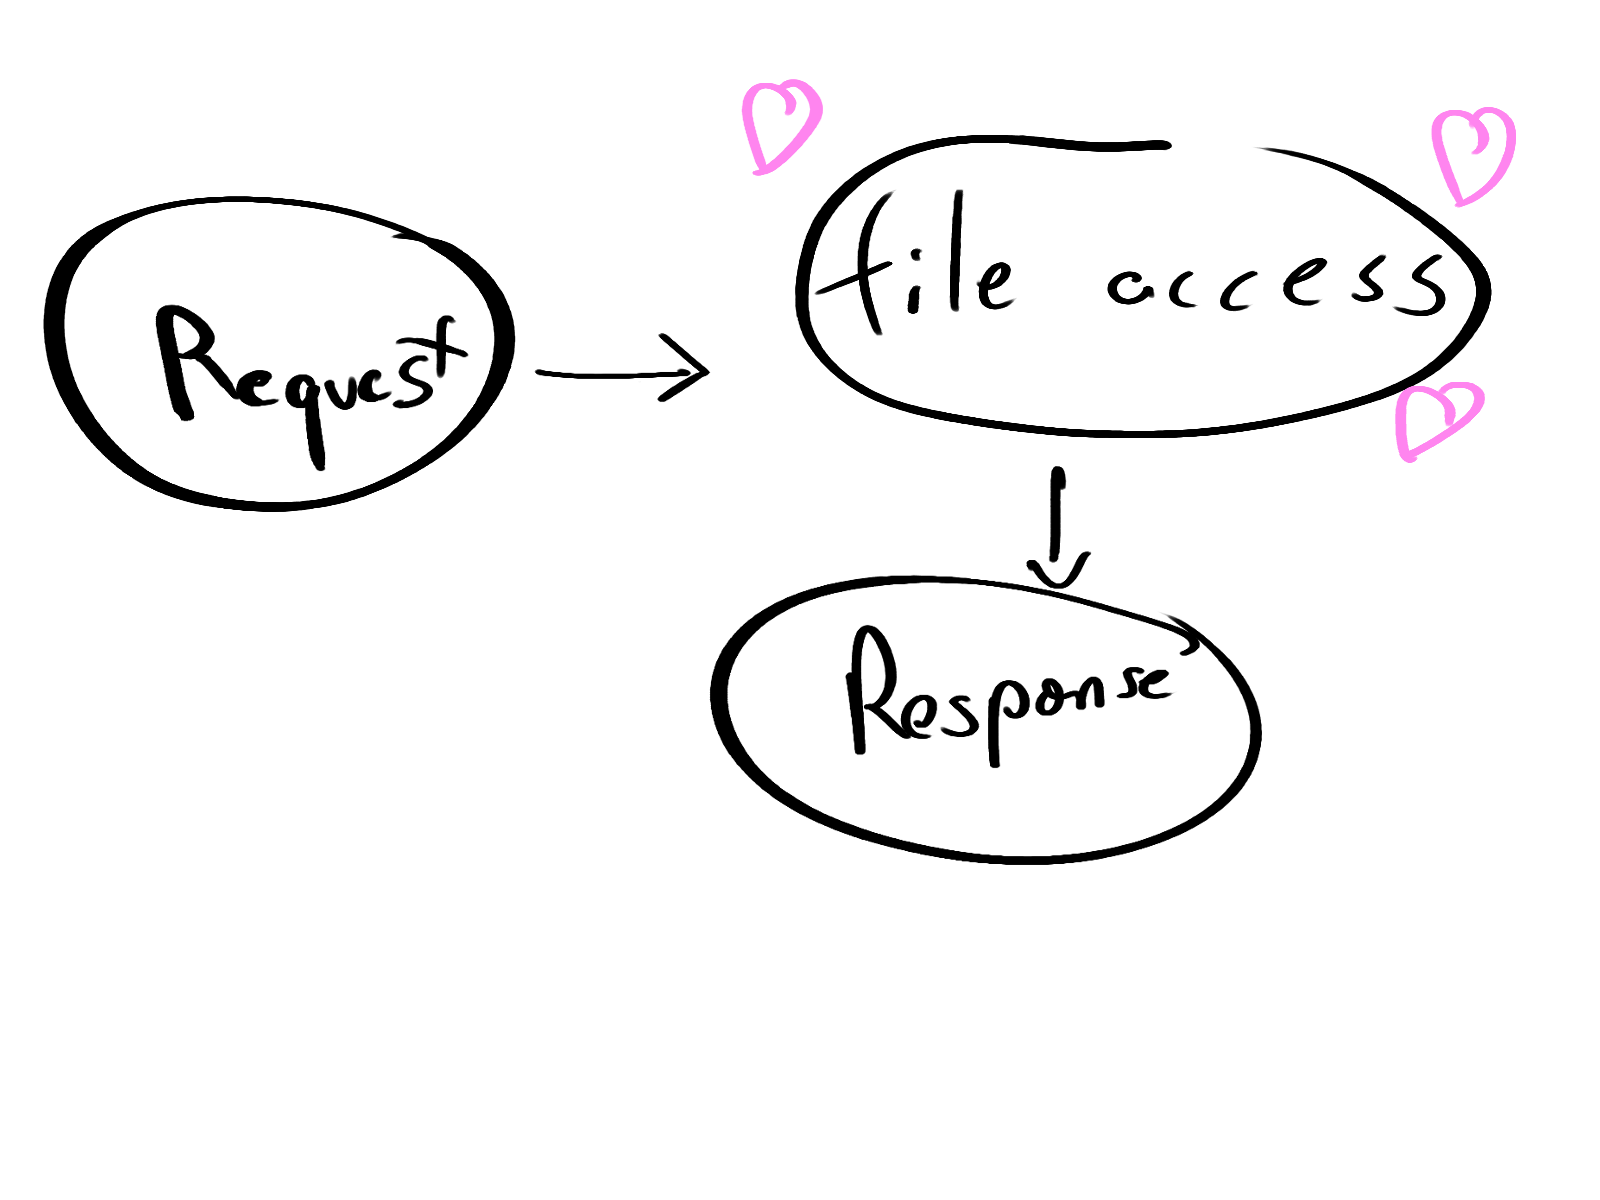 Request
file access
Response